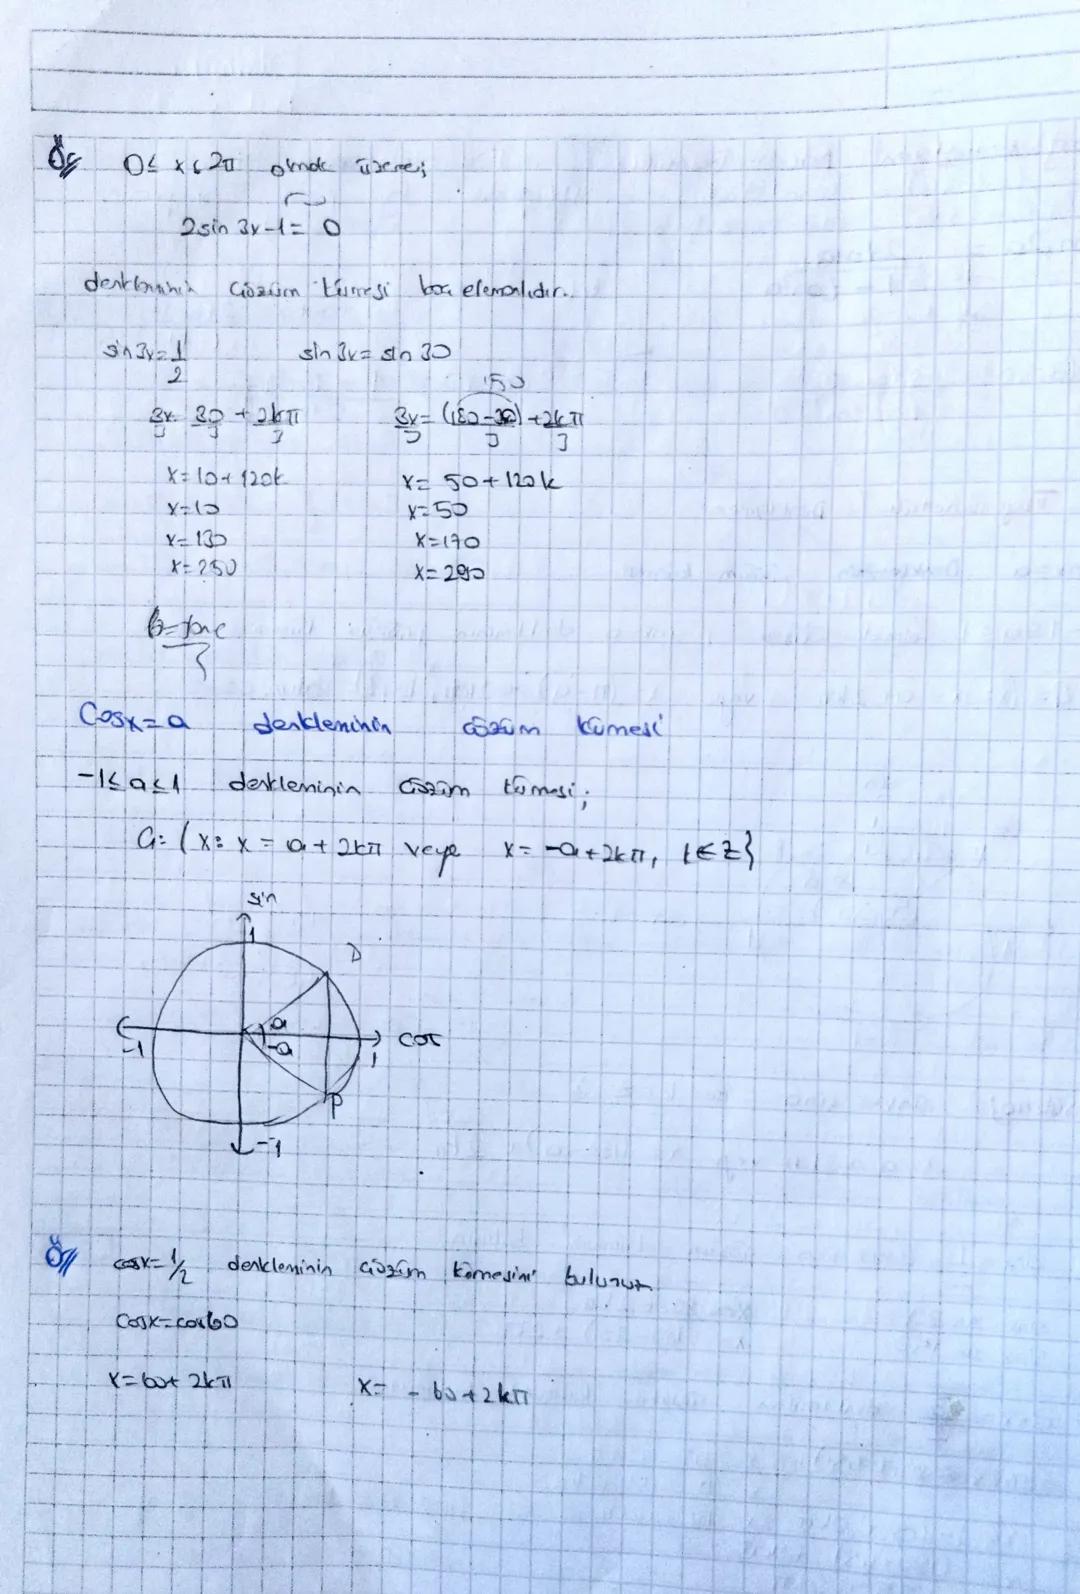 Ör 0≤ x ≤ 2π olmak üzere;
2sin 3x-1= 0
denkleminin çözüm kümesi kaç elemanlıdır.
sin3x=1/2 sin 3x= sin 30
150
3x/3 = 30/3 + 2kπ/3 3x/3 = (180-30)/3 + 2kπ/3
x= 10+120k x= 50+120k
x=10 x=50
x=130 x=170
x=250 x=290
6 tane
Cosx= a denkleminin çözüm kümesi
-1≤a≤1 denkleminin çözüm kümesi;
Ç: { x: x = a + 2kπ veya x= -a+2kπ, k∈Z}
sin
1
D
a
-a
-1 1 cos
P
-1
Ör cosx=1/2 denkleminin çözüm kümesini bulunuz
Cosx=cos60
x=60+ 2kπ x= -60+2kπ